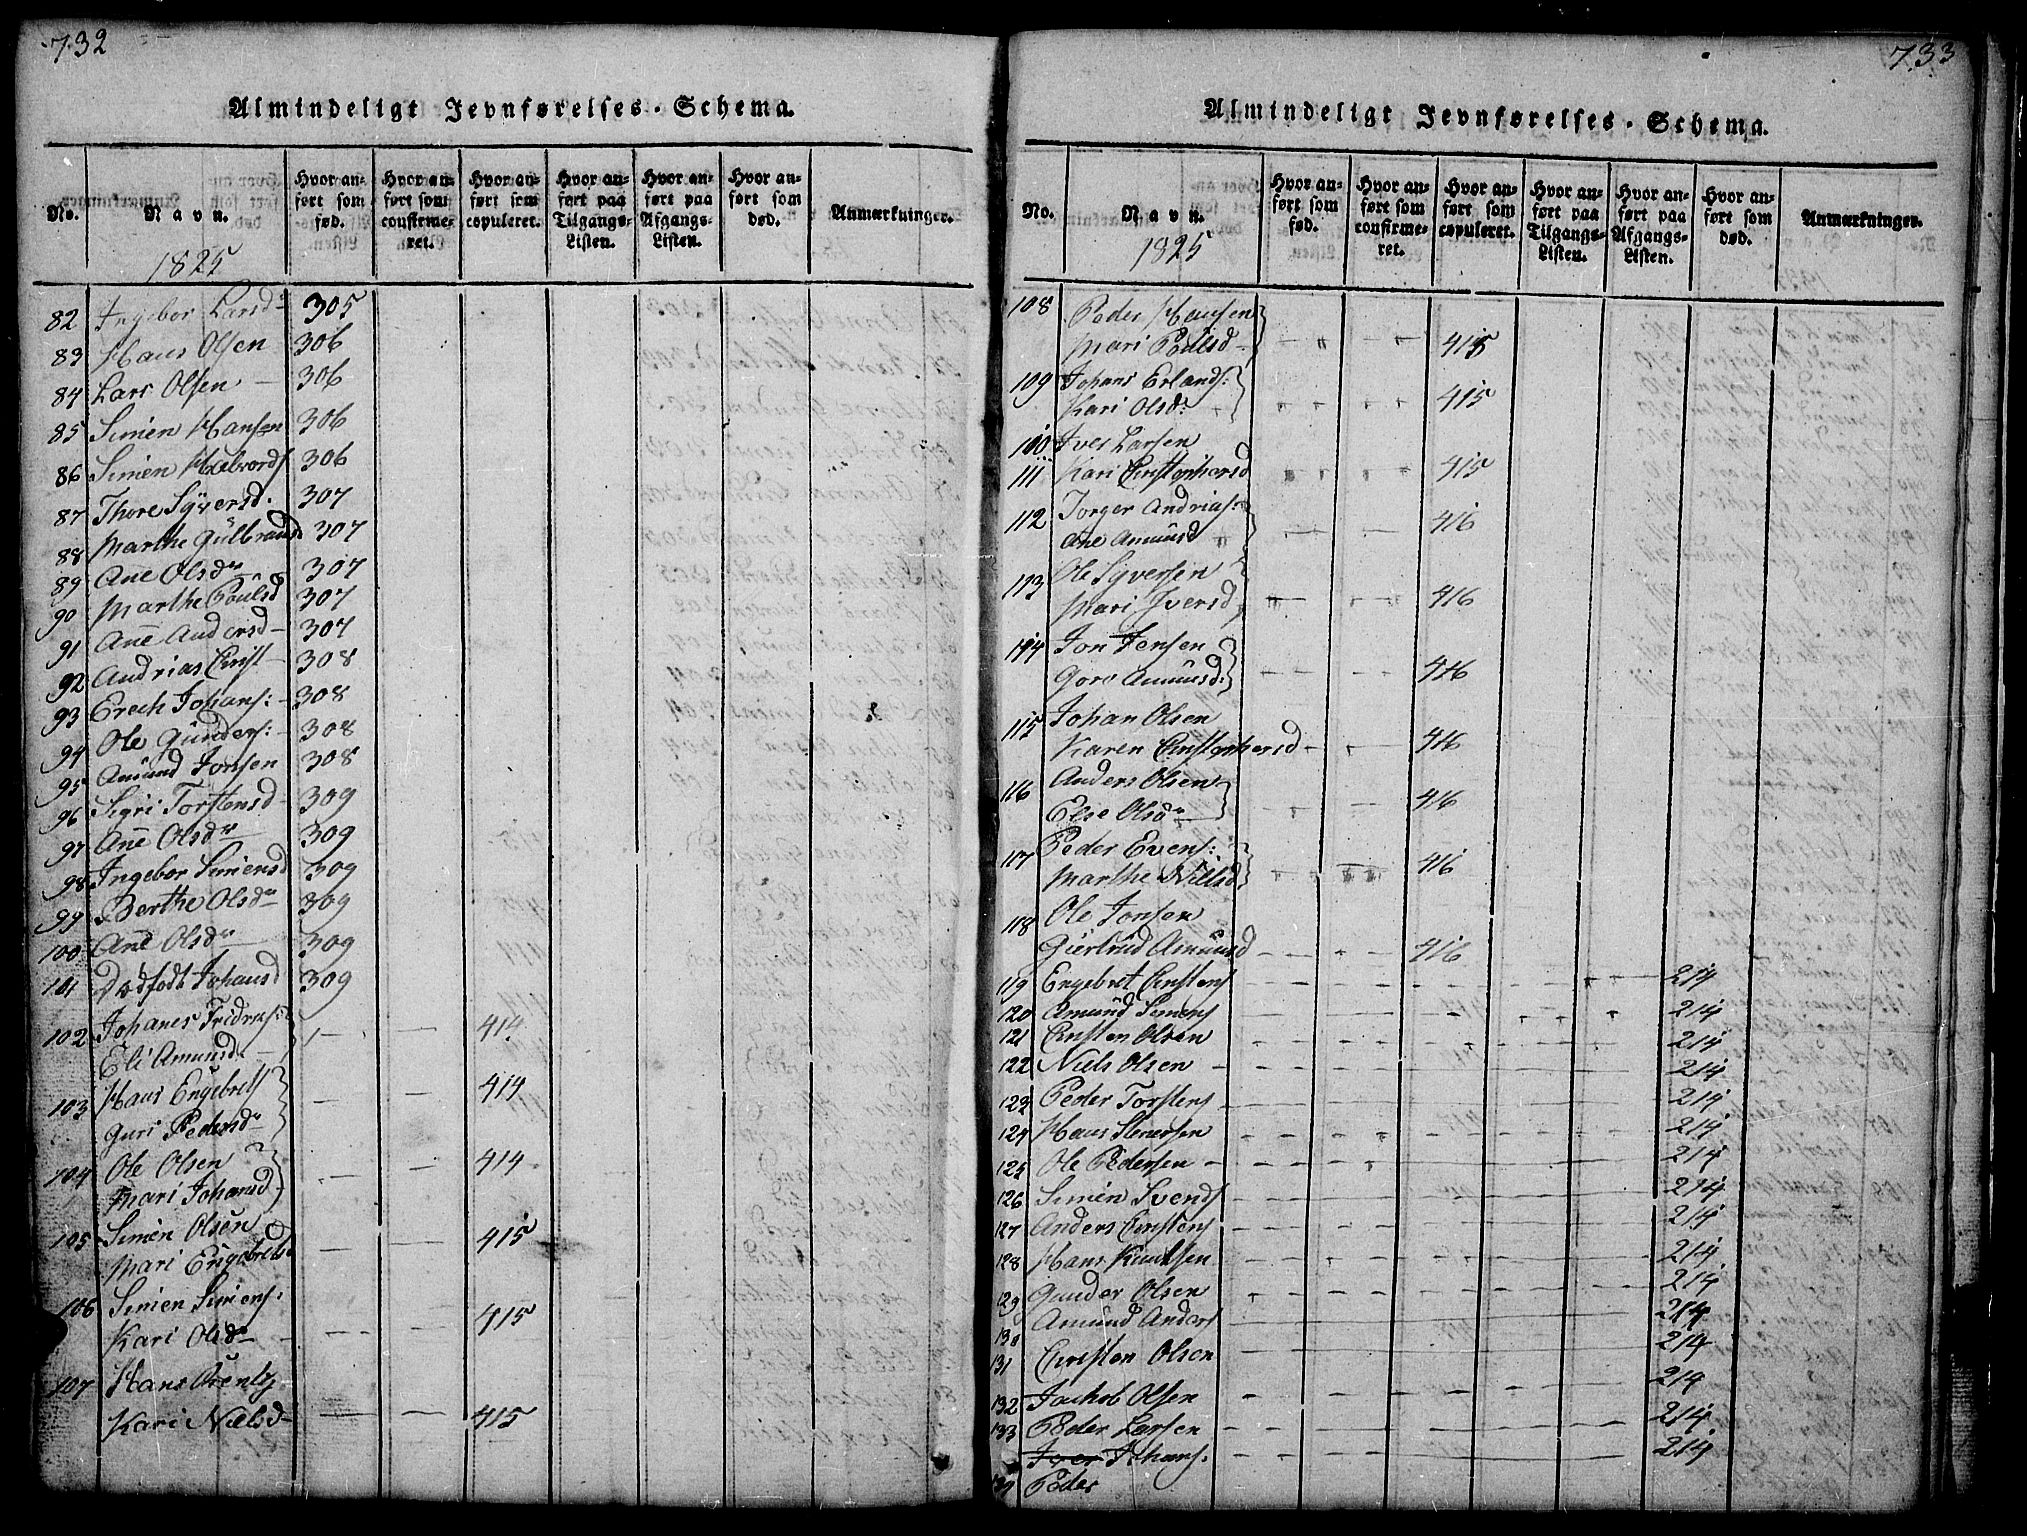 732
Almindeligt Jevnførelses-Schema.
No.
Navn.
Hvor anført som fød.
Hvor anført som confirmeret.
Hvor anført som copuleret.
Hvor anført paa Tilgangs-Listen.
Hvor anført paa Afgangs-Listen.
Hvor anført som død.
Anmærkninger.
1825
82 Ingebor Larsdr 305
83 Hans Olsen 306
84 Lars Olsen 306
85 Simen Hansen 306
86 Simen 306
87 Thore Syversd. 307
88 Marthe Gulbrands 307
89 Ane Olsdr 307
90 Marthe Poulsd 307
91 Ane Andersd 307
92 Andrias Christ 308
93 Erech Johans: 308
94 Ole Gunders: 308
95 Amund Jonsen 308
96 Sigri Torstensd 309
97 Ane Olsdr 309
98 Ingebor Simensd 309
99 Berthe Olsdr 309
100 Ane Olsdr 309
101 Dødfødt Johansd 309
102 Johanes Fridrics:
Eli Amunsd. 414
103 Hans Engebrets
Guri Pedersd 414
104 Ole Olsen
Mari Johansd 414
105 Simen Olsen
Mari Engebretsd 415
106 Simen Simens:
Kari Olsdr 415
107 Hans
Kari Nielsd 415
733
Almindeligt Jevnførelses-Schema.
No.
Navn.
Hvor anført som fød.
Hvor anført som confirmeret.
Hvor anført som copuleret.
Hvor anført paa Tilgangs-Listen.
Hvor anført paa Afgangs-Listen.
Hvor anført som død.
Anmærkninger.
1825
108 Peder Hansen
Mari Poulsd 415
109 Johans Erlands:
Kari Olsd: 415
110 Iver Larsen
111 Kari Christophersd 415
112 Jorger Andrias:
Ane Amunsd 416
113 Ole Syversen
Mari Iversd 416
114 Jon Jensen
Goro Amunsd: 416
115 Johan Olsen
Karen Christophersd 416
116 Anders Olsen
Else Olsdr 416
117 Peder Evens:
Marthe Nielsd 416
118 Ole Jonsen
Giertrud Amunsd 416
119 Engebret Christens 214
120 Amund Simens 214
121 Christen Olsen 214
122 Niels Olsen 214
123 Peder Torstens 214
124 Hans Stenersen 214
125 Ole Pedersen 214
126 Simen Svends 214
127 Anders Christens 214
128 Hans Knudsen 214
129 Gunder Olsen 214
130 Amund Anders 214
131 Christen Olsen 214
132 Jachob Olsen 214
133 Peder Larsen 214
Iver Johans: 214
Peder